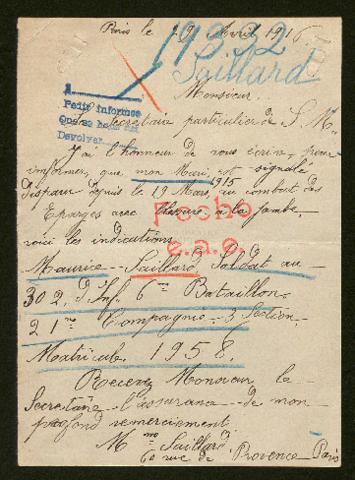 Paris le 19 Avril 1916
19332
Saillard
Monsieur.
Le Secretaire particulier de S. M.
1
Pedir informes
Devolver
J'ai l'honneur de vous écrire, pour
informer, que mon Mari, est signalé
1915
disparu depuis le 19 Mars, au combat des
Eparges avec blessure, à la jambe.
Fecho
voici les indications
e.a.e.
Maurice Saillard, Soldat au
302. d'Inf. 6me Bataillon.
21me Compagnie - 3 Section.
Matricule. 1958.
Recevez Monsieur le
Secretaire l'assurance de mon
profond remerciement
Mme Saillard
60 rue de Provence Paris